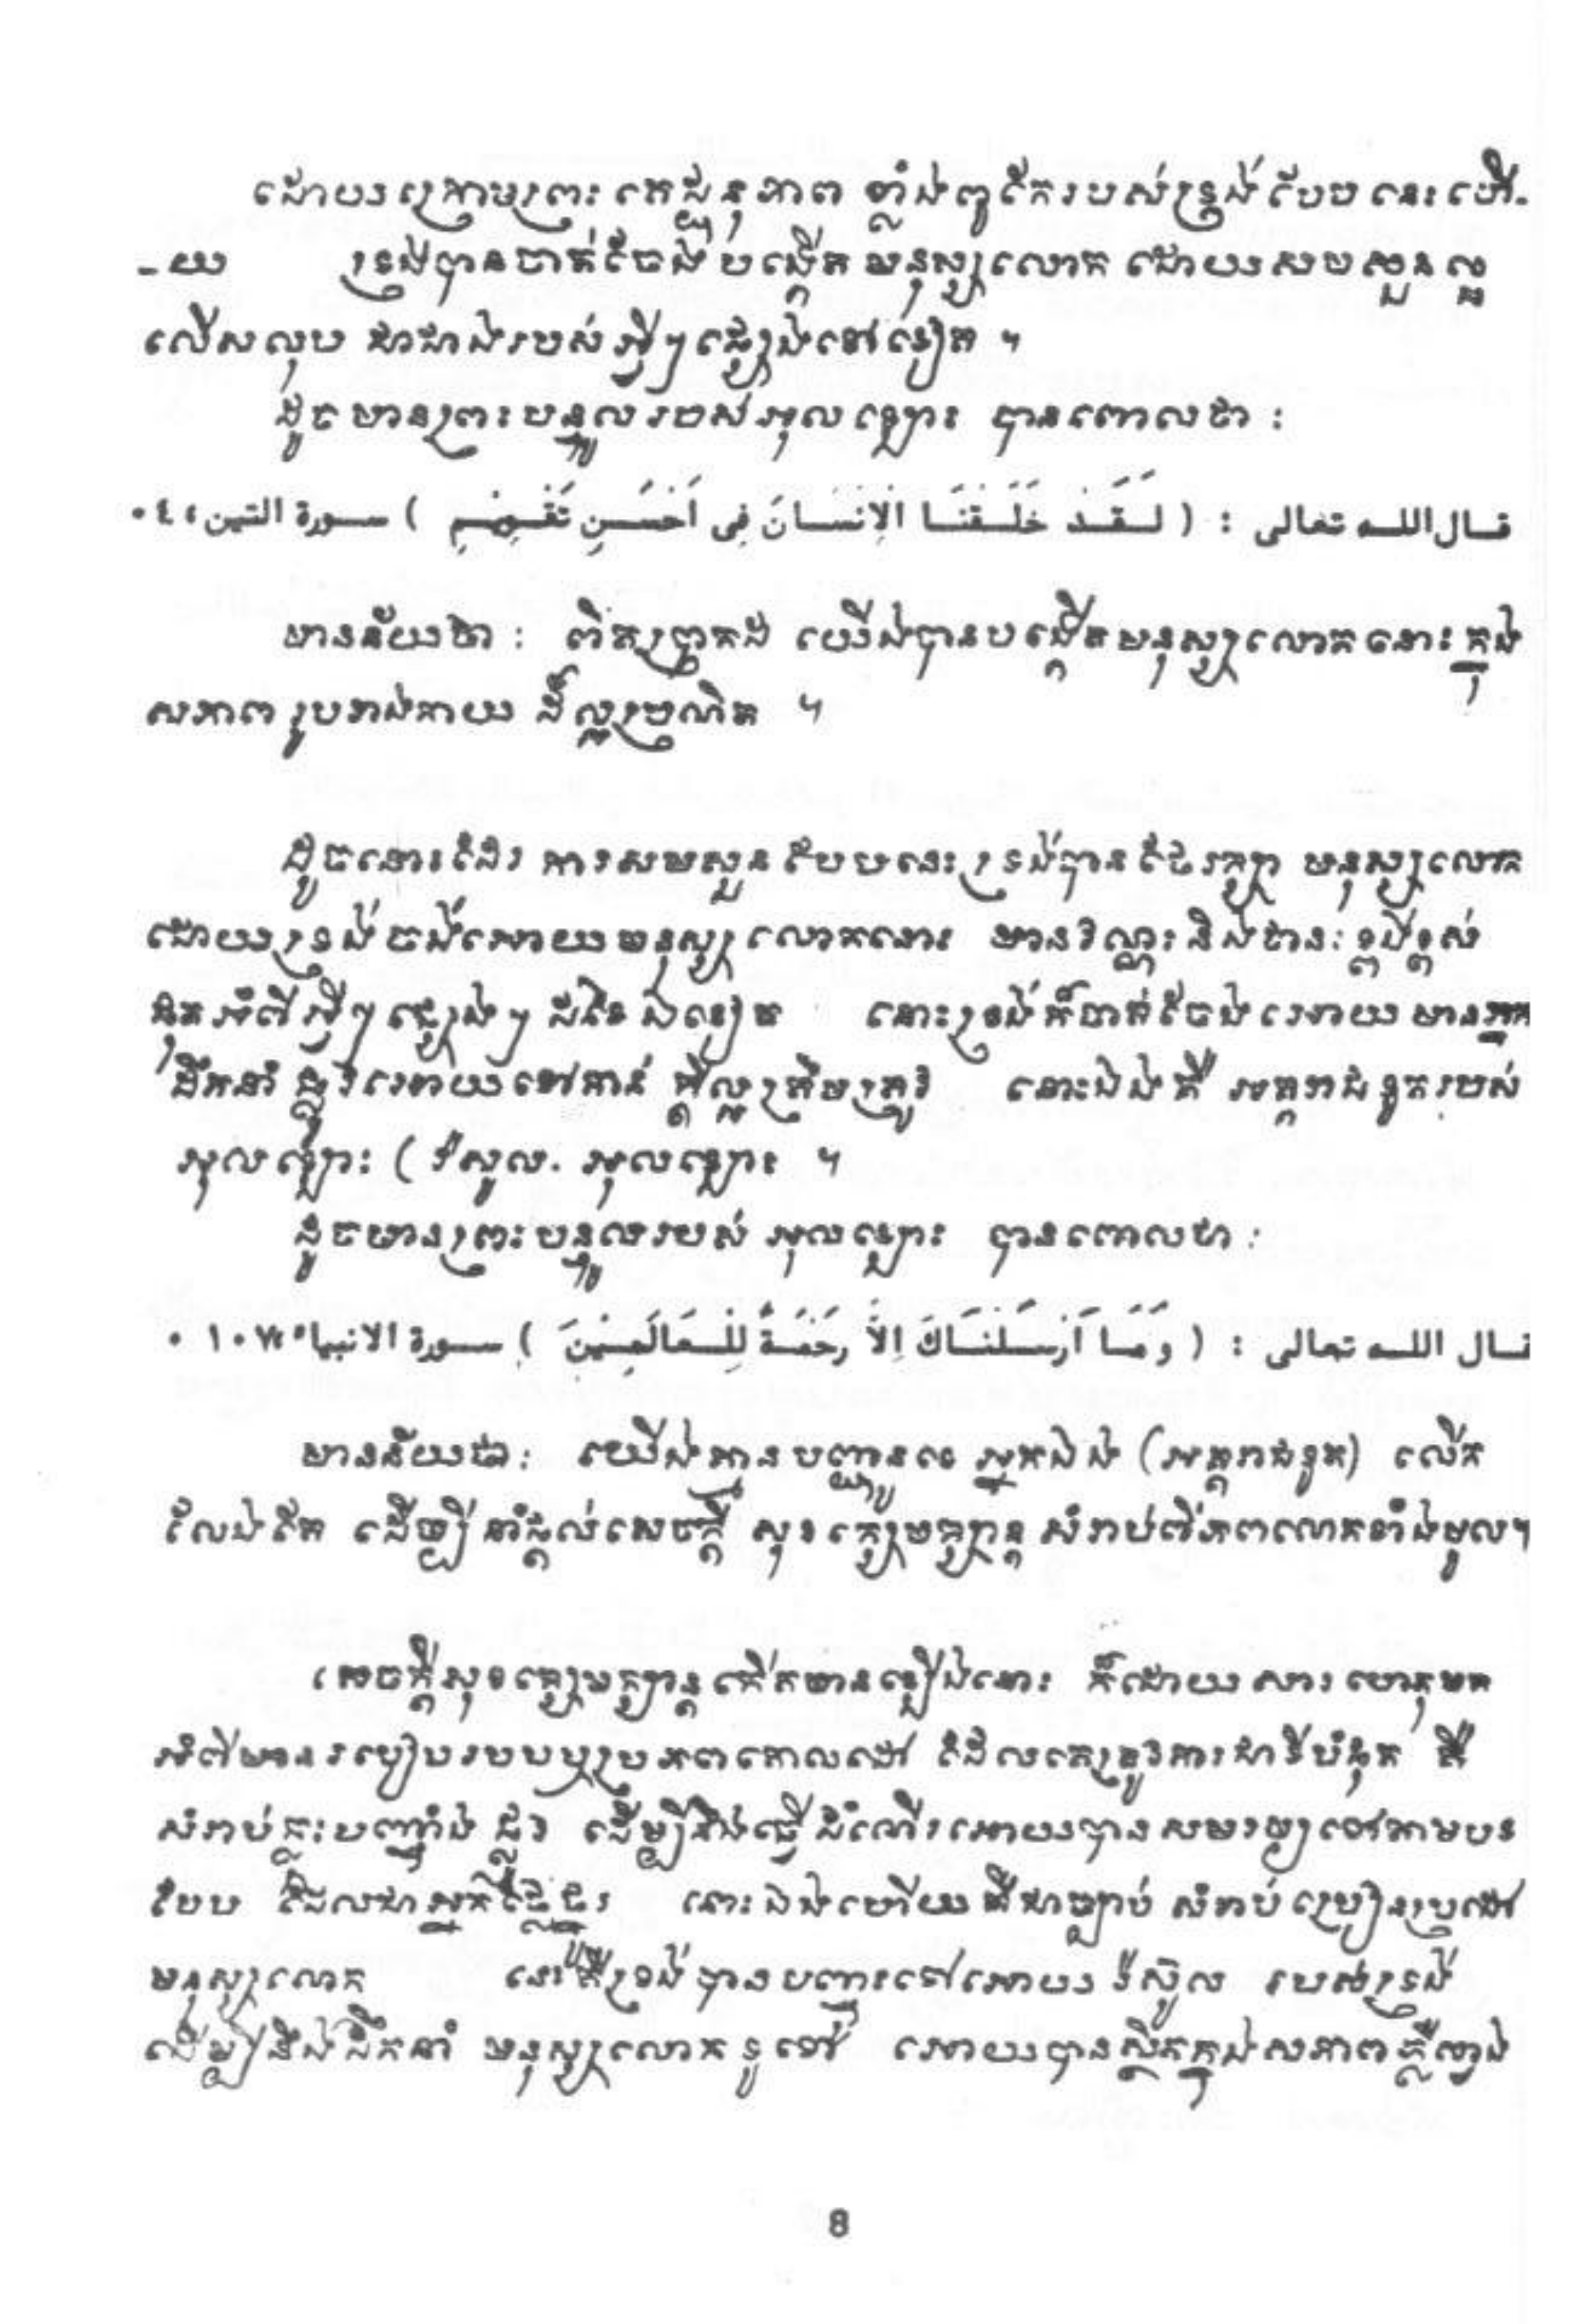 ដោយក្រោមព្រះតេជានុភាព ខ្លាំងពូកែរបស់ទ្រង់បែបនេះហើ-
-យ ទ្រង់បានចាត់ចែងបង្កើតមនុស្សលោក ដោយសមសួនល្អ
លើសលុប ជាជាងរបស់អ្វីៗផ្សេងទៅទៀត ។
ដូចមានព្រះបន្ទូលរបស់អុលឡោះ បានពោលថា :
قال الله تعالى : ( لَقَدْ خَلَقْنَا الْإِنْسَانَ فِى أَحْسَنِ تَقْوِيْمٍ ) سورة التين، ٤٠
មានន័យថា : ពិតប្រាកដ យើងបានបង្កើតមនុស្សលោកនោះក្នុង
សភាពរូបរាងកាយ ដ៏ល្អប្រណិត ។
ដូចនោះដែរ ការសមសួនបែបនេះ ទ្រង់បានថែរក្សា មនុស្សលោក
ដោយទ្រង់ចង់អោយមនុស្សលោកនោះ មានវណ្ណះនិងឋានៈខ្ពង់ខ្ពស់
ផុតអំពីអ្វីៗផ្សេងៗដទៃឯទៀត នោះទ្រង់ក៏ចាត់ចែងអោយមានអ្នក
ដឹកនាំ ផ្លូវអោយទៅកាន់ ក្តីល្អត្រឹមត្រូវ នោះឯងគឺ អគ្គរាជទូតរបស់
អុលឡោះ ( រ៉សូល. អុលឡោះ ។
ដូចមានព្រះបន្ទូលរបស់ អុលឡោះ បានពោលថា :
قال الله تعالى : ( وَمَا أَرْسَلْنَاكَ إِلاَّ رَحْمَةً لِلْعَالَمِيْنَ ) سورة الانبياء ١٠٧٠
មានន័យថា : យើងគ្មានបញ្ជូនទេ អ្នកឯង (អគ្គរាជទូត) លើក
លែងតែ ដើម្បីនាំផ្តល់សេចក្តី សុខក្សេមក្សាន្ត សំរាប់ពិភពលោកទាំងមូល។
សេចក្តីសុខក្សេមក្សាន្តកើតមានឡើងនោះ ក៏ដោយសារហេតុមក
អំពីមានរបៀបរបប ឬប្រភពគោលដៅ ដែលត្រូវការជាទីបំផុត គឺ
សំរាប់ឆ្ពោះបញ្ចាំង ផ្លូវ ដើម្បីនឹងធ្វើដំណើរអោយបានសមរម្យទៅតាមបទ
បែប ដែលជាអ្នកថ្លៃថ្នូរ នោះឯងហើយគឺជាច្បាប់ សំរាប់ប្រៀនប្រដៅ
មនុស្សលោក នេះគឺទ្រង់បានបញ្ជារទៅអោយ រ៉ស៊ូល របស់ទ្រង់
ដើម្បីនឹងដឹកនាំ មនុស្សលោកទូទៅ អោយបានស្ថិតក្នុងសភាព
8